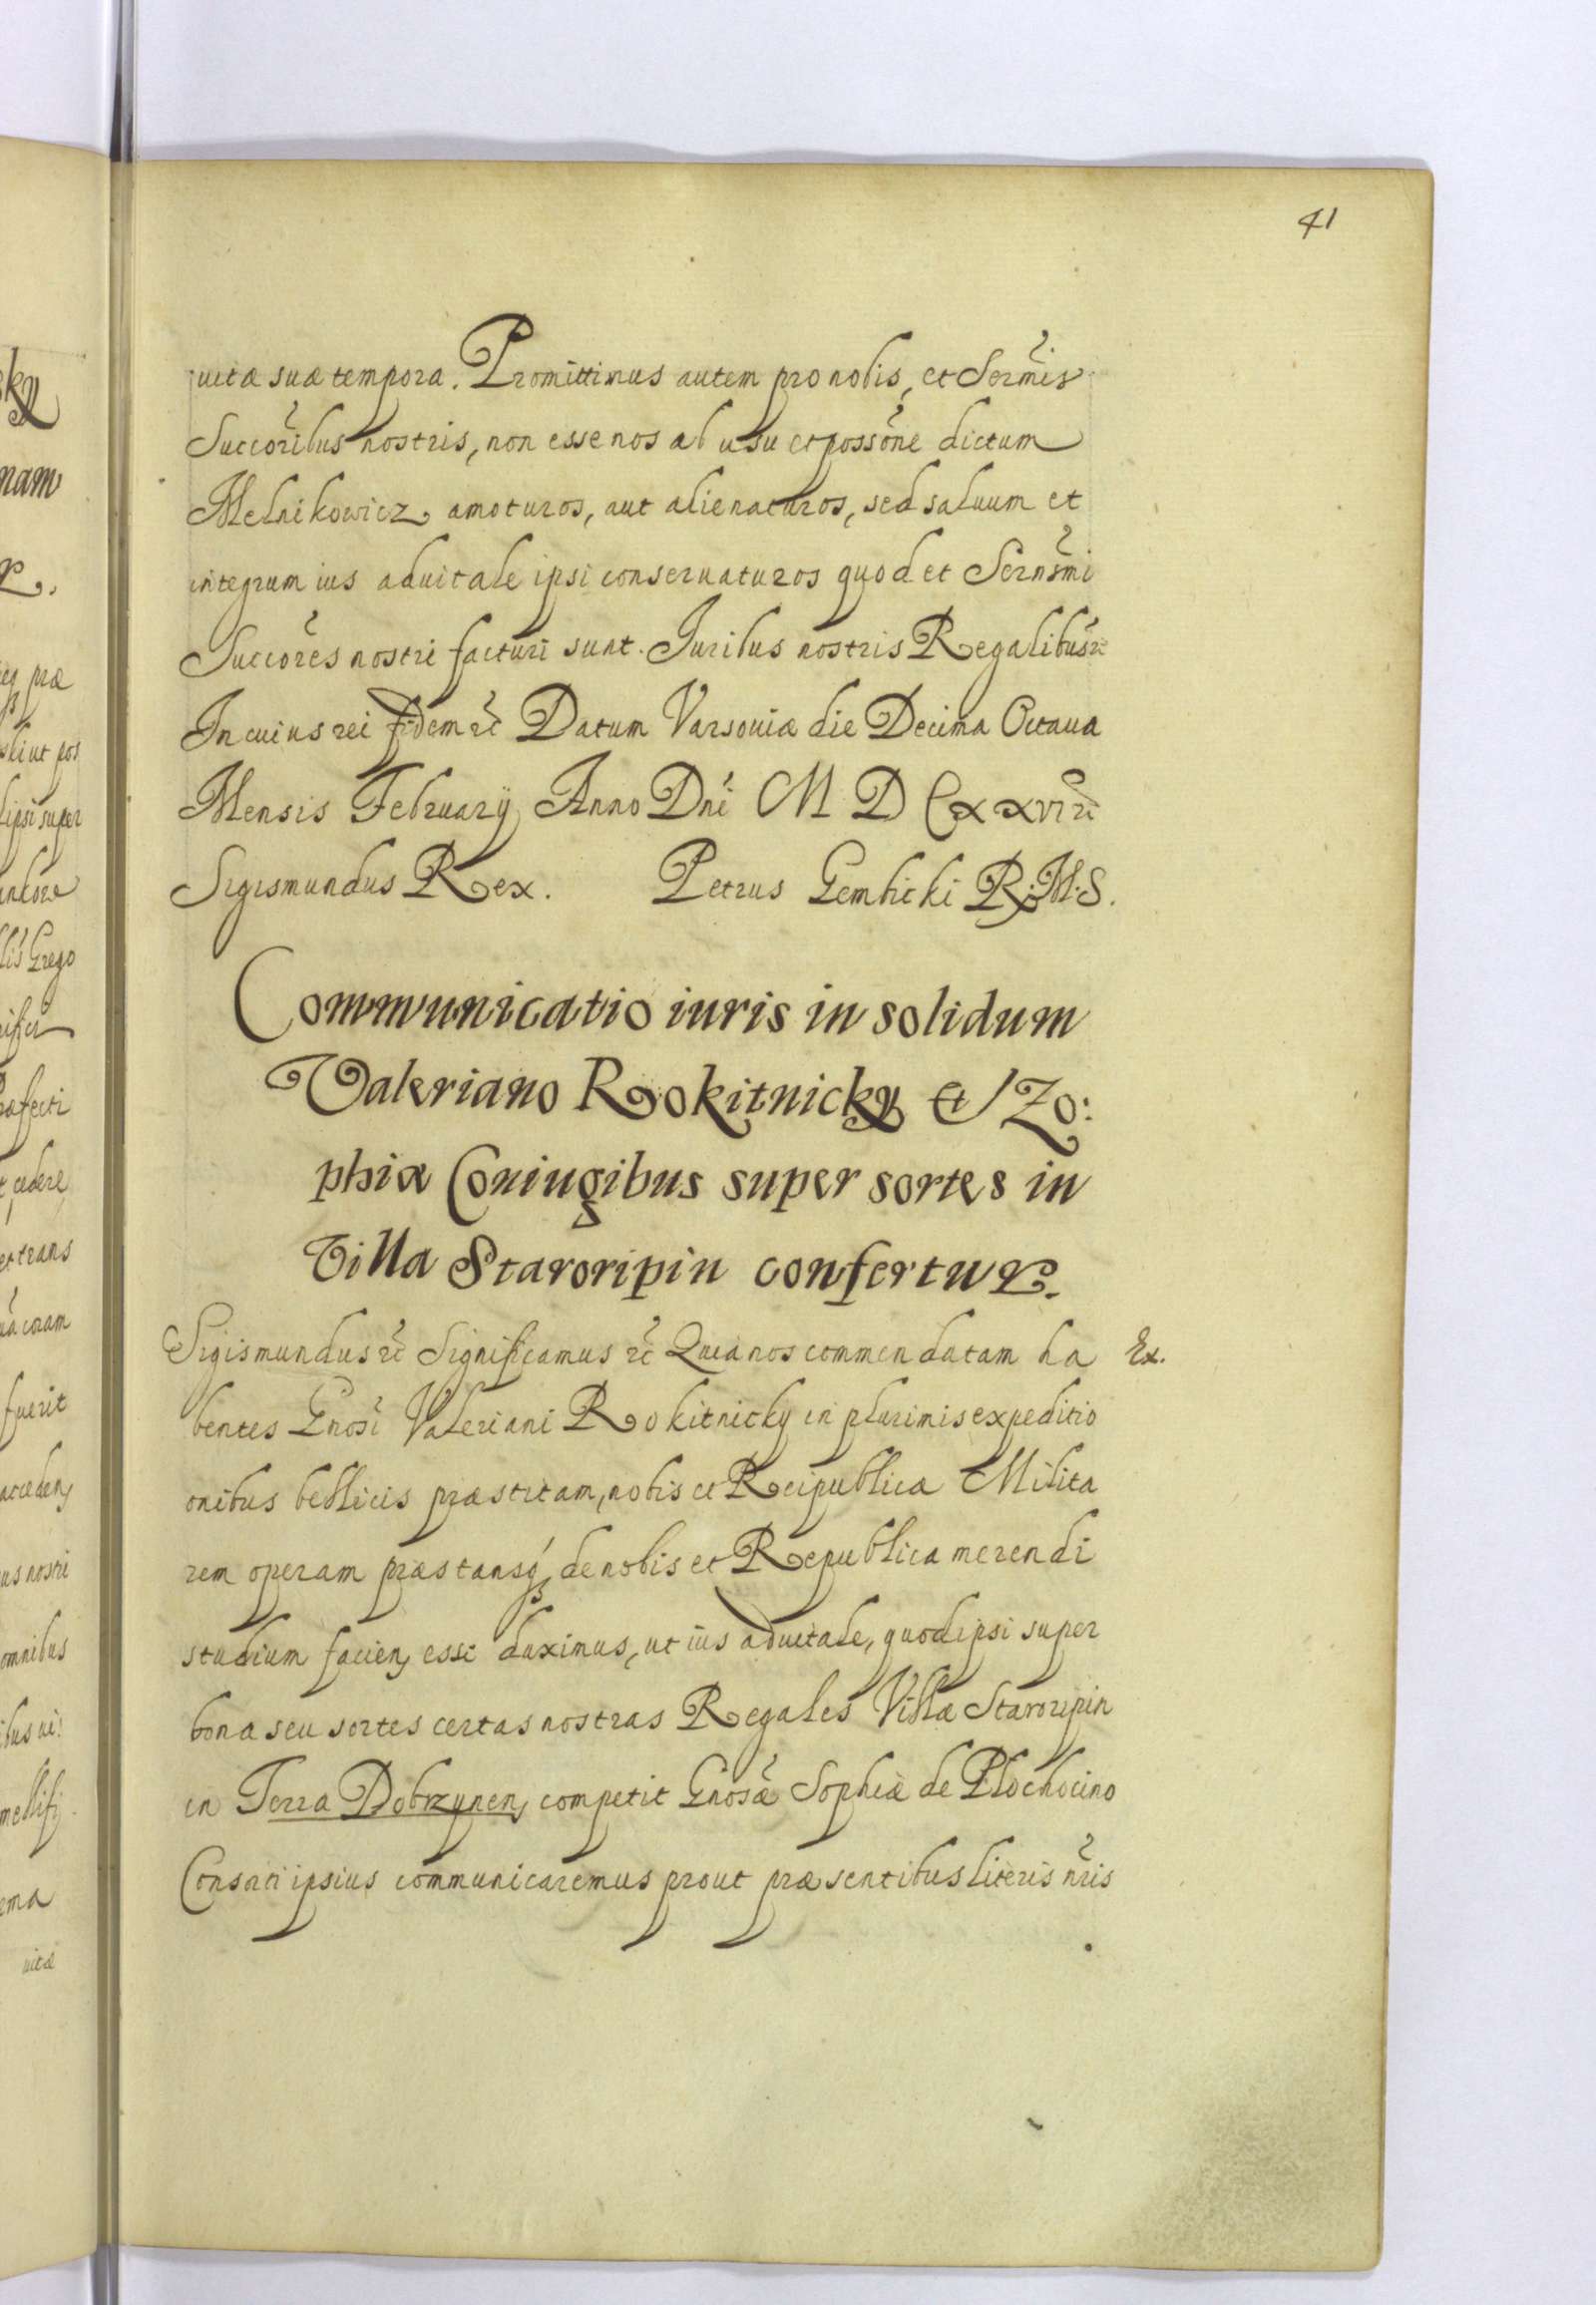 41
uitæ suæ tempora. Promittimus autem pro nobis, et Serm̃is
Succor̃ibus nostris, non esse nos ab usu et possõne dictum
Melnikowicz amoturos, aut alienaturos, sed saluum et
integrum ius aduitale ipsi conseruaturos quod et Sernsm̃i
Succorẽs nostri facturi sunt. Iuribus nostris Regalibus ꝛc̃
In cuius rei fidem ꝛc̃ Datum Varsouiæ die Decima Octaua
Mensis February Anno Dni M D Cxxvii ꝛc̃
Sigismundus Rex. Petrus Gembicki R: M: S.
Communicatio iuris in solidum
Valeriano Rokitnicky et Zo:
phiæ Coniugibus super sortes in
Villa Staroripin confertur.
Sigismundus ꝛc̃ Significamus ꝛc̃ Quia nos commendatam ha
Ex.
bentes Gnosi Valeriani Rokitnicky in plurimis expeditio
onibus bellicis præstitam, nobis et Reipublicæ Milita
rem operam præstansq́ de nobis et Republica merendi
studium facien, esse duximus, ut ius aduitale, quod ipsi super
bona seu sortes certas nostras Regales Villæ Staroripin
in Terra Dobrzynen, competit Gnosæ Sophiæ de Plochocino
Consorti ipsius communicaremus prout præsentibus literis nr̃is